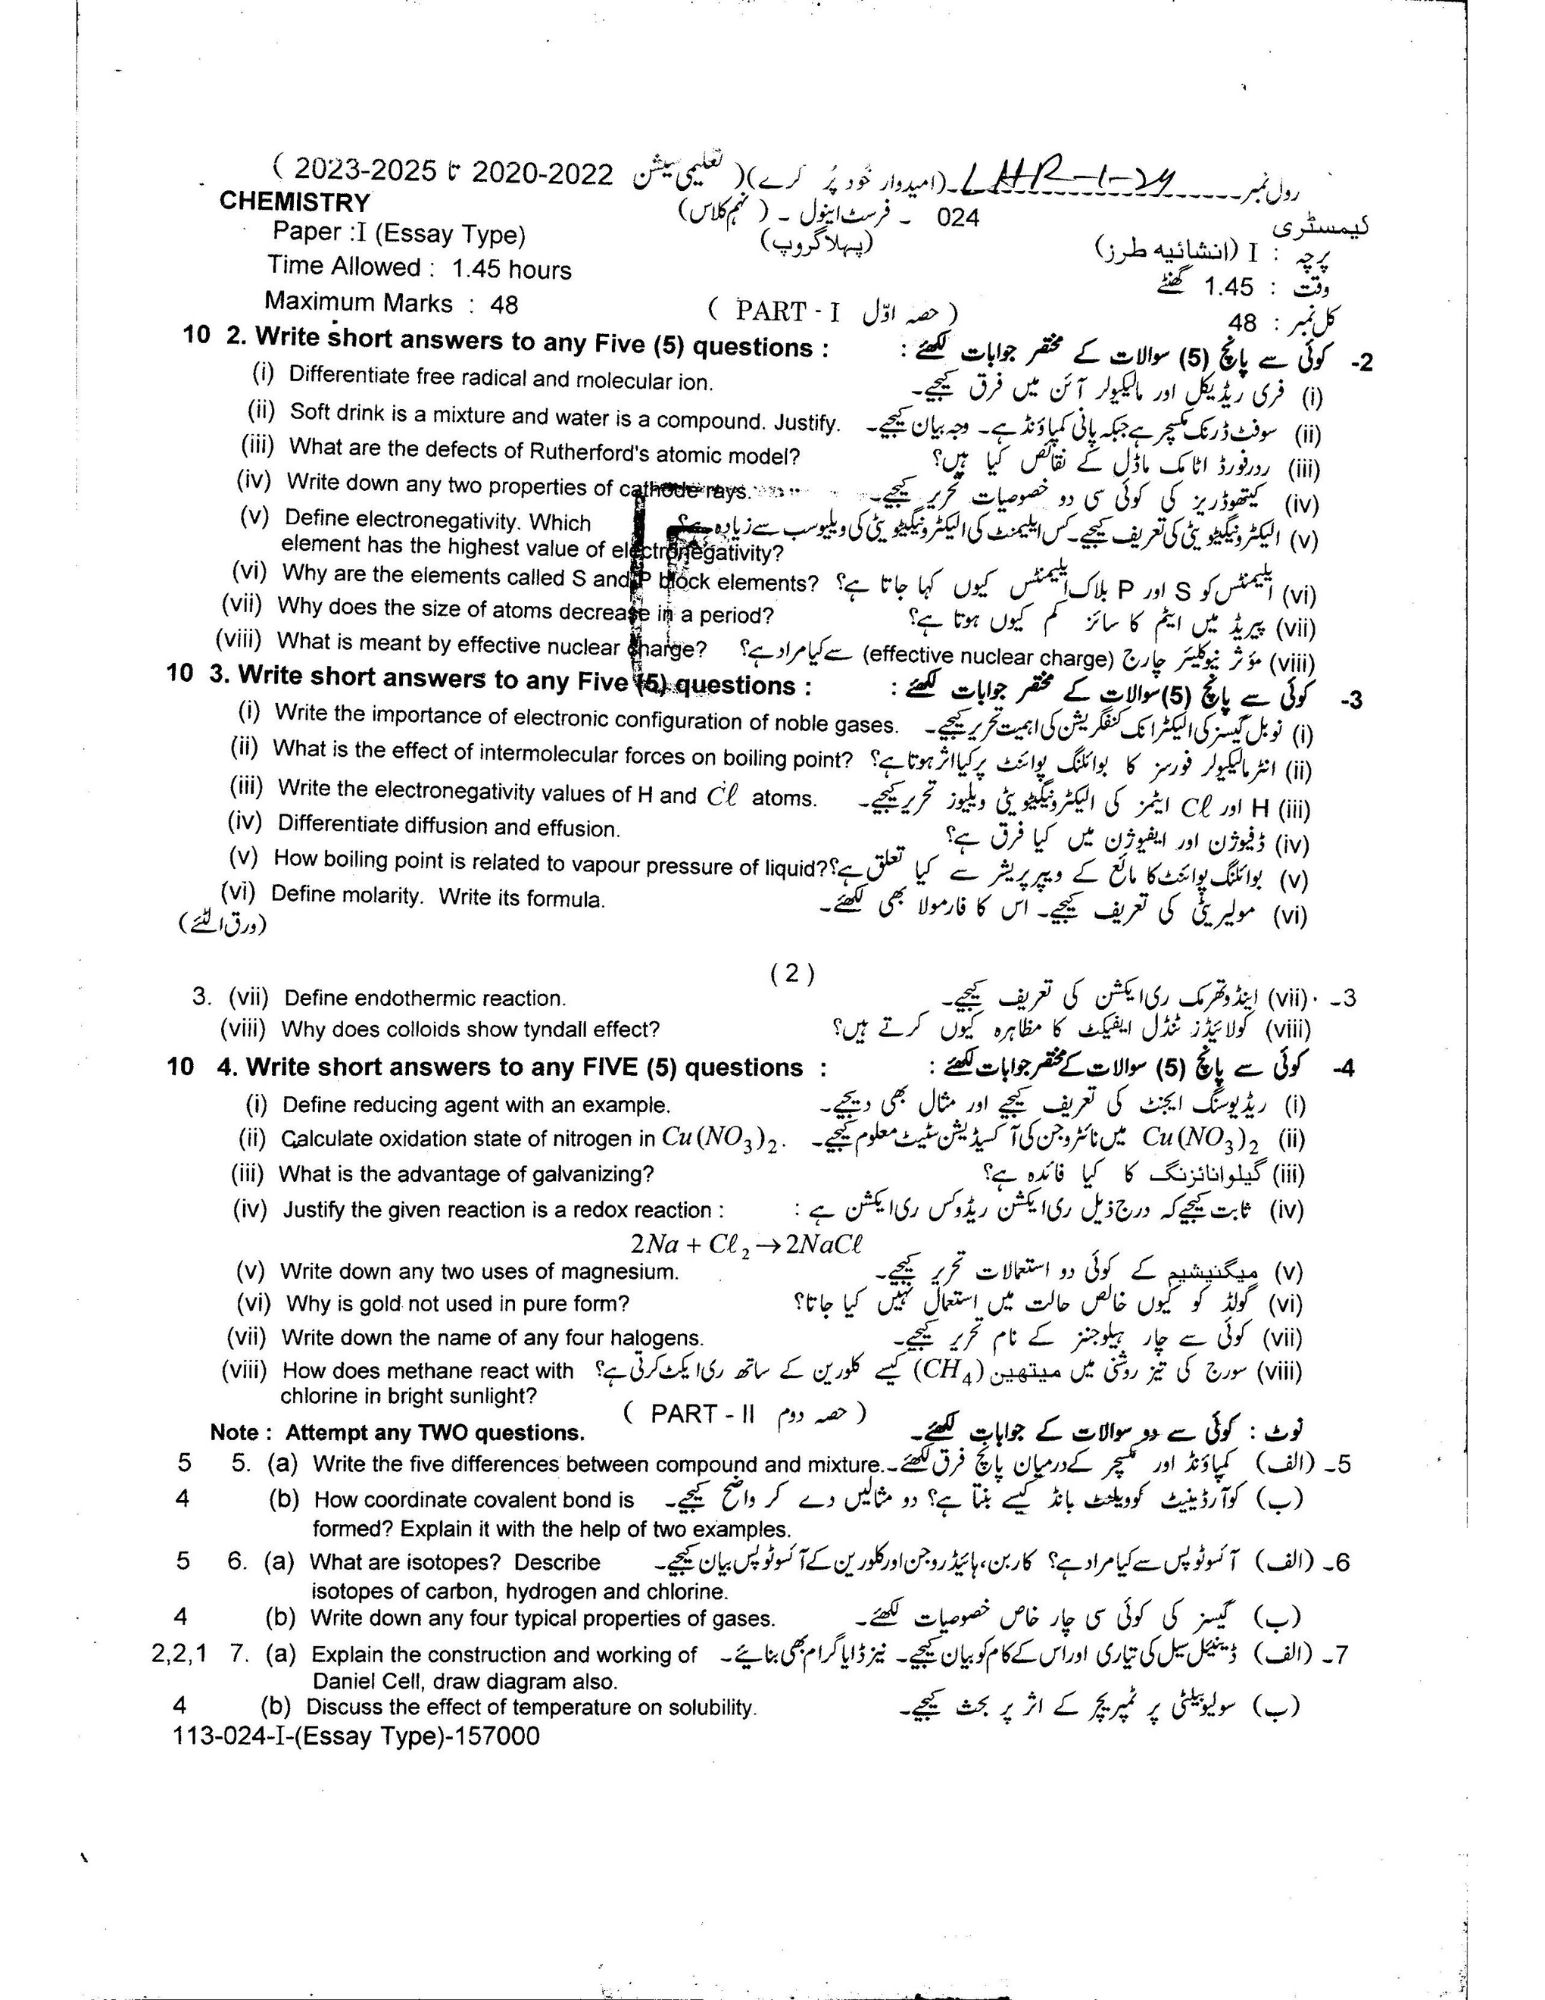 رول نمبر LHR-1-24 (امیدوار خود پُر کرے) (تعلیمی سیشن 2020-2022 تا 2023-2025)
CHEMISTRY 024 - فرسٹ اینول - (نہم کلاس) کیمسٹری
Paper :I (Essay Type) (پہلا گروپ) پرچہ : I (انشائیہ طرز)
Time Allowed : 1.45 hours وقت : 1.45 گھنٹے
Maximum Marks : 48 ( PART - I حصہ اوّل ) کل نمبر : 48
10 2. Write short answers to any Five (5) questions : 2- کوئی سے پانچ (5) سوالات کے مختصر جوابات لکھئے :
(i) Differentiate free radical and molecular ion. (i) فری ریڈیکل اور مالیکیولر آئن میں فرق کیجیے۔
(ii) Soft drink is a mixture and water is a compound. Justify. (ii) سوفٹ ڈرنک مکسچر ہے جبکہ پانی کمپاؤنڈ ہے۔ وجہ بیان کیجیے۔
(iii) What are the defects of Rutherford's atomic model? (iii) ردرفورڈ اٹامک ماڈل کے نقائص کیا ہیں؟
(iv) Write down any two properties of cathode rays. (iv) کیتھوڈ ریز کی کوئی سی دو خصوصیات تحریر کیجیے۔
(v) Define electronegativity. Which (v) الیکٹرونیگیٹیویٹی کی تعریف کیجیے۔ کس ایلیمنٹ کی الیکٹرونیگیٹیویٹی کی ویلیو سب سے زیادہ ہے؟
element has the highest value of electronegativity?
(vi) Why are the elements called S and P block elements? (vi) ایلیمنٹس کو S اور P بلاک ایلیمنٹس کیوں کہا جاتا ہے؟
(vii) Why does the size of atoms decrease in a period? (vii) پیریڈ میں ایٹم کا سائز کم کیوں ہوتا ہے؟
(viii) What is meant by effective nuclear charge? (viii) مؤثر نیوکلیئر چارج (effective nuclear charge) سے کیا مراد ہے؟
10 3. Write short answers to any Five (5) questions : 3- کوئی سے پانچ (5) سوالات کے مختصر جوابات لکھئے :
(i) Write the importance of electronic configuration of noble gases. (i) نوبل گیسز کی الیکٹرانک کنفگریشن کی اہمیت تحریر کیجیے۔
(ii) What is the effect of intermolecular forces on boiling point? (ii) انٹرمالیکیولر فورسز کا بوائلنگ پوائنٹ پر کیا اثر ہوتا ہے؟
(iii) Write the electronegativity values of H and Cℓ atoms. (iii) H اور Cℓ ایٹمز کی الیکٹرونیگیٹیویٹی ویلیوز تحریر کیجیے۔
(iv) Differentiate diffusion and effusion. (iv) ڈفیوژن اور ایفیوژن میں کیا فرق ہے؟
(v) How boiling point is related to vapour pressure of liquid? (v) بوائلنگ پوائنٹ کا مائع کے ویپر پریشر سے کیا تعلق ہے؟
(vi) Define molarity. Write its formula. (vi) مولیریٹی کی تعریف کیجیے۔ اس کا فارمولا بھی لکھئے۔
(ورق الٹئے)
( 2 )
3. (vii) Define endothermic reaction. 3- (vii) اینڈوتھرمک ری ایکشن کی تعریف کیجیے۔
(viii) Why does colloids show tyndall effect? (viii) کولائیڈز ٹنڈل ایفیکٹ کا مظاہرہ کیوں کرتے ہیں؟
10 4. Write short answers to any FIVE (5) questions : 4- کوئی سے پانچ (5) سوالات کے مختصر جوابات لکھئے :
(i) Define reducing agent with an example. (i) ریڈیوسنگ ایجنٹ کی تعریف کیجیے اور مثال بھی دیجیے۔
(ii) Calculate oxidation state of nitrogen in Cu(NO₃)₂. (ii) Cu(NO₃)₂ میں نائٹروجن کی آکسیڈیشن سٹیٹ معلوم کیجیے۔
(iii) What is the advantage of galvanizing? (iii) گیلوانائزنگ کا کیا فائدہ ہے؟
(iv) Justify the given reaction is a redox reaction : (iv) ثابت کیجیے کہ درج ذیل ری ایکشن ریڈوکس ری ایکشن ہے :
2Na + Cℓ₂ → 2NaCℓ
(v) Write down any two uses of magnesium. (v) میگنیشیم کے کوئی دو استعمالات تحریر کیجیے۔
(vi) Why is gold not used in pure form? (vi) گولڈ کو کیوں خالص حالت میں استعمال نہیں کیا جاتا؟
(vii) Write down the name of any four halogens. (vii) کوئی سے چار ہیلوجنز کے نام تحریر کیجیے۔
(viii) How does methane react with (viii) سورج کی تیز روشنی میں میتھین (CH₄) کیسے کلورین کے ساتھ ری ایکٹ کرتی ہے؟
chlorine in bright sunlight?
( PART - II حصہ دوم )
Note : Attempt any TWO questions. نوٹ : کوئی سے دو سوالات کے جوابات لکھئے۔
5 5. (a) Write the five differences between compound and mixture. 5- (الف) کمپاؤنڈ اور مکسچر کے درمیان پانچ فرق لکھئے۔
4 (b) How coordinate covalent bond is (ب) کوآرڈینیٹ کوویلنٹ بانڈ کیسے بنتا ہے؟ دو مثالیں دے کر واضح کیجیے۔
formed? Explain it with the help of two examples.
5 6. (a) What are isotopes? Describe 6- (الف) آئسوٹوپس سے کیا مراد ہے؟ کاربن، ہائیڈروجن اور کلورین کے آئسوٹوپس بیان کیجیے۔
isotopes of carbon, hydrogen and chlorine.
4 (b) Write down any four typical properties of gases. (ب) گیسز کی کوئی سی چار خاص خصوصیات لکھئے۔
2,2,1 7. (a) Explain the construction and working of 7- (الف) ڈینیئل سیل کی تیاری اور اس کے کام کو بیان کیجیے۔ نیز ڈایاگرام بھی بنائیے۔
Daniel Cell, draw diagram also.
4 (b) Discuss the effect of temperature on solubility. (ب) سولیوبیلٹی پر ٹمپریچر کے اثر پر بحث کیجیے۔
113-024-I-(Essay Type)-157000